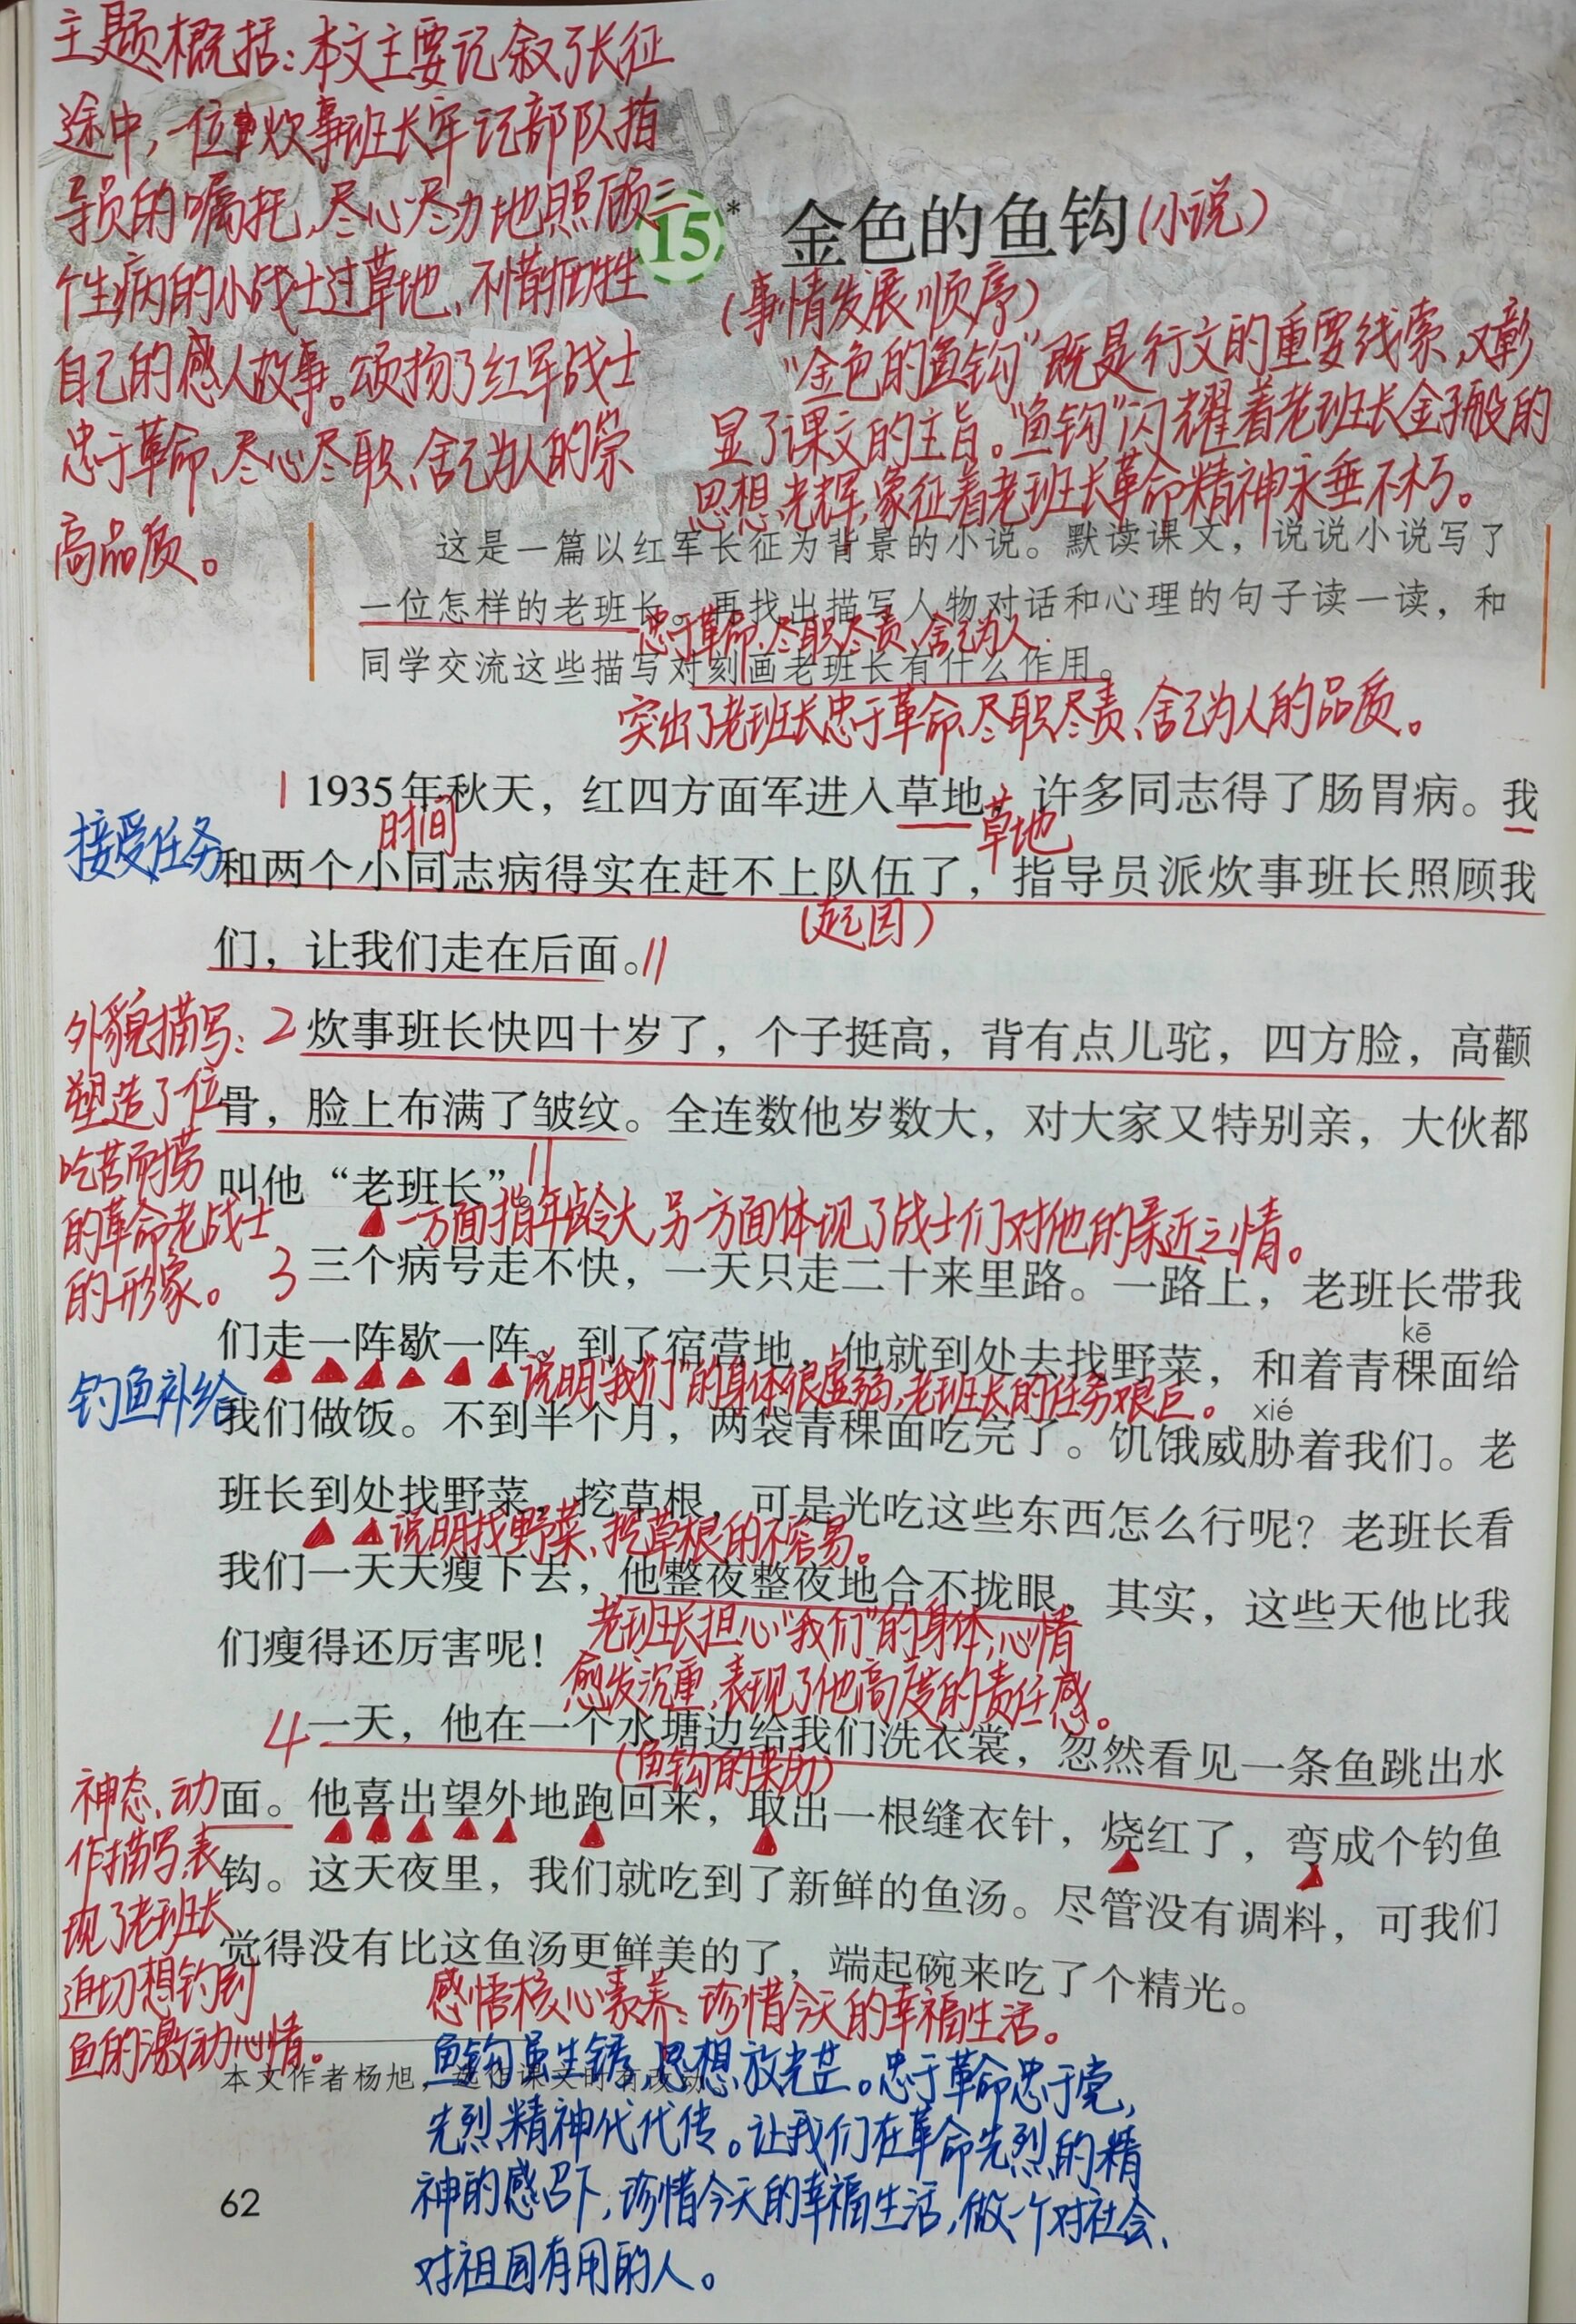 主题概括：本文主要记叙了长征
途中，一位炊事班长牢记部队指
导员的嘱托，尽心尽力地照顾三
个生病的小战士过草地，不惜牺牲
自己的感人故事。颂扬了红军战士
忠于革命、尽心尽职、舍己为人的崇
高品质。
15* 金色的鱼钩（小说）
（事情发展顺序）
“金色的鱼钩”既是行文的重要线索，又彰
显了课文的主旨。“鱼钩”闪耀着老班长金子般的
思想光辉，象征着老班长革命精神永垂不朽。
这是一篇以红军长征为背景的小说。默读课文，说说小说写了
一位怎样的老班长。再找出描写人物对话和心理的句子读一读，和
忠于革命、尽职尽责、舍己为人.
同学交流这些描写对刻画老班长有什么作用。
突出了老班长忠于革命、尽职尽责、舍己为人的品质。
1 1935年秋天，红四方面军进入草地，许多同志得了肠胃病。我
时间 草地
接受任务
和两个小同志病得实在赶不上队伍了，指导员派炊事班长照顾我
（起因）
们，让我们走在后面。
外貌描写：
塑造了位
吃苦耐捞
的革命老战士
的形象。
2 炊事班长快四十岁了，个子挺高，背有点儿驼，四方脸，高颧
骨，脸上布满了皱纹。全连数他岁数大，对大家又特别亲，大伙都
叫他“老班长”。
一方面指年龄大，另一方面体现了战士们对他的亲近之情。
3 三个病号走不快，一天只走二十来里路。一路上，老班长带我
kē
们走一阵歇一阵。到了宿营地，他就到处去找野菜，和着青稞面给
说明“我们”的身体很虚弱，老班长的任务艰巨。
钓鱼补给
xié
我们做饭。不到半个月，两袋青稞面吃完了。饥饿威胁着我们。老
班长到处找野菜，挖草根，可是光吃这些东西怎么行呢？老班长看
说明找野菜、挖草根的不容易。
我们一天天瘦下去，他整夜整夜地合不拢眼。其实，这些天他比我
老班长担心“我们”的身体，心情
们瘦得还厉害呢！
愈发沉重，表现了他高度的责任感。
4 一天，他在一个水塘边给我们洗衣裳，忽然看见一条鱼跳出水
（鱼钩的来历）
神态、动
作描写表
现了老班长
迫切想钓到
鱼的激动心情。
面。他喜出望外地跑回来，取出一根缝衣针，烧红了，弯成个钓鱼
钩。这天夜里，我们就吃到了新鲜的鱼汤。尽管没有调料，可我们
觉得没有比这鱼汤更鲜美的了，端起碗来吃了个精光。
感悟核心素养：珍惜今天的幸福生活。
本文作者杨旭，选作课文时有改动
鱼钩虽生锈，思想放光芒。忠于革命忠于党，
先烈精神代代传。让我们在革命先烈的精
神的感召下，珍惜今天的幸福生活，做一个对社会、
对祖国有用的人。
62